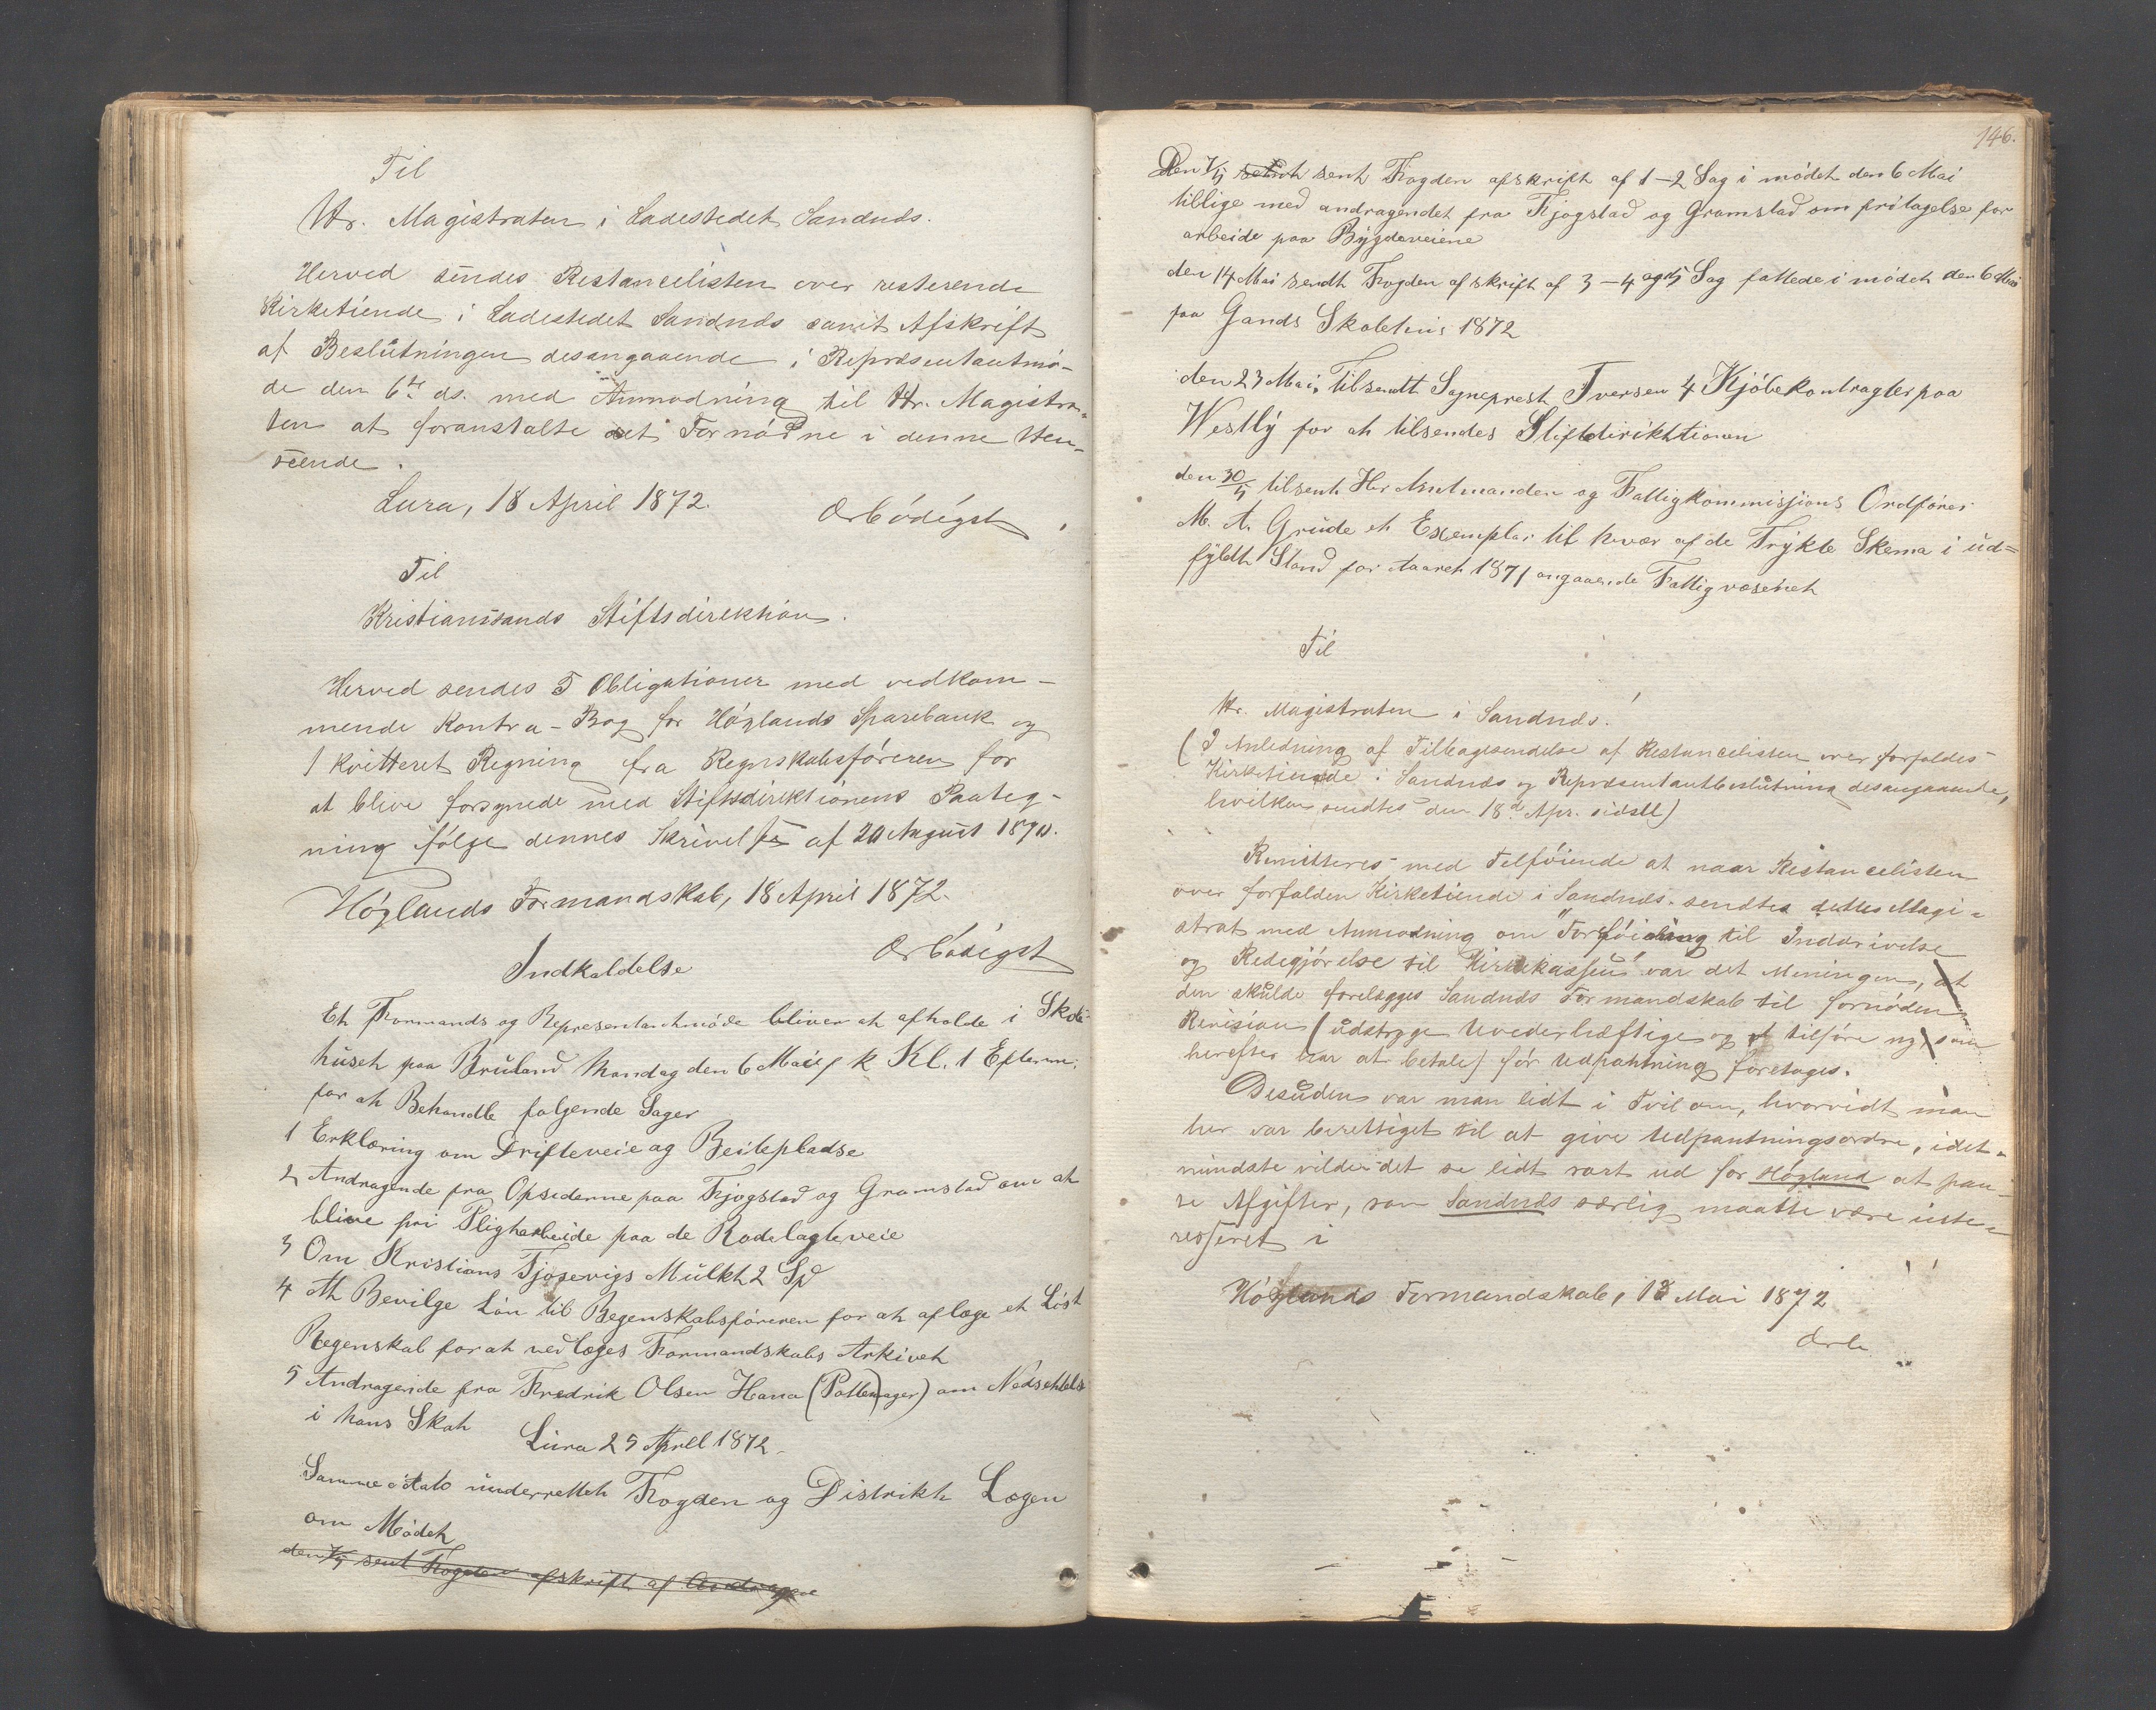 Til
Hr. Magistraten i Ladestedet Sandnds.
Herved sendes Restancelisten over resterende
Kirketiende i Ladestedet Sandnds samt Afskrift
af Beslutningen desangaaende i Repræsentantmø-
de den 6te ds. med Anmodning til Hr. Magistra-
ten at foranstalte det Fornødne i denne Hen-
seende.
Lura, 18 April 1872.
Ærbödigst
Til
Kristianssands Stiftsdirektion.
Herved sendes 5 Obligationer med vedkom-
mende Kontra-Bog for Höglands Sparebank og
1 kvitteret Regning fra Regnskabsföreren for
at blive forsynede med Stiftsdirektionens Paateg-
ning fölge dennes Skrivelse af 20 August 1870.
Höglands Formandskab, 18 April 1872.
Ærbödigst
Indkaldelse
Et Formands og Representantmöde bliver at afholde i Skole
huset paa Bruland Mandag den 6 Mai f k Kl. 1 Efterm.
for at Behandle fölgende Sager
1 Erklæring om Drifteveie og Beitepladse
2 Andragende fra Opsederne paa Fjogstad og Gramstad om at
blive fri Pligtarbeide paa de Rodelagte veie
3 Om Kristians Tjosevigs Mulkt 2 Spd
4 At Bevilge Lön til Regenskabsföreren for at aflæge et Löst
Regenskab for at vedlæges Formandskabs Arkivet
5 Andragende fra Fredrik Olsen Hana (Pottemager) om Nedsettelse
i hans Skat
Lura 25 April 1872
Samme dato underrettet Fogden og Distrikt Lægen
om Mödet
den 7/5 sent Fogden afskrift af Andragen
146.
Den 7/5 sent Fogden afskrift af 1-2 Sag i mödet den 6 Mai
tillige med andragendet fra Fjogstad og Gramstad om fritagelse for
arbeide paa Bygdeveiene
den 14 Mai sendt Fogden afskrift af 3-4 og 5 Sag fattede i mödet den 6 Mai
paa Gands Skolehus 1872
den 23 Mai Tilsendt Sogneprest Iversen 4 Kjöbekontragter paa
Westly for at tilsendes Stiftdirikttionen
den 30/5 tilsent Her Amtmanden og Fattigkommissions Ordförer
M. A. Grude et Exemplar til hver af de Trykte Skema i ud=
fyldt Stand for Aaret 1871 angaaende Fattigvæsenet
Til
Hr. Magistraten i Sandnds!
(I Anledning af Tilbagesendelse af Restancelisten over forfaldes
Kirketiende i Sandnds og Repræsentantbeslutning desangaaende,
hvilken sendtes den 18de Apr. sidstl)
Remitteres med Tilföiende at naar Restancelisten
over forfalden Kirketiende i Sandnds sendtes dettes Magi-
strat med Anmodning om "Forföining til Inddrivelse
og Redegjörelse til Kirkekassen" var det Meningen, at
den skulde forelægges Sandnds Formandskab til fornöden
Revision (udstryge Uvederhæftige og tilföre ny, som
herefter har at betale) för Udpantning foretages.
Desuden var man lidt i Tvil om, hvorvidt man
her var berettiget til at give Udpantningsordre, idet-
mindste vilde det se lidt rart ud for Högland at pan-
te Afgifter, som Sandnds særlig maatte være inte-
resseret i
Höglands Formandskab, 13 Mai 1872
Ærb